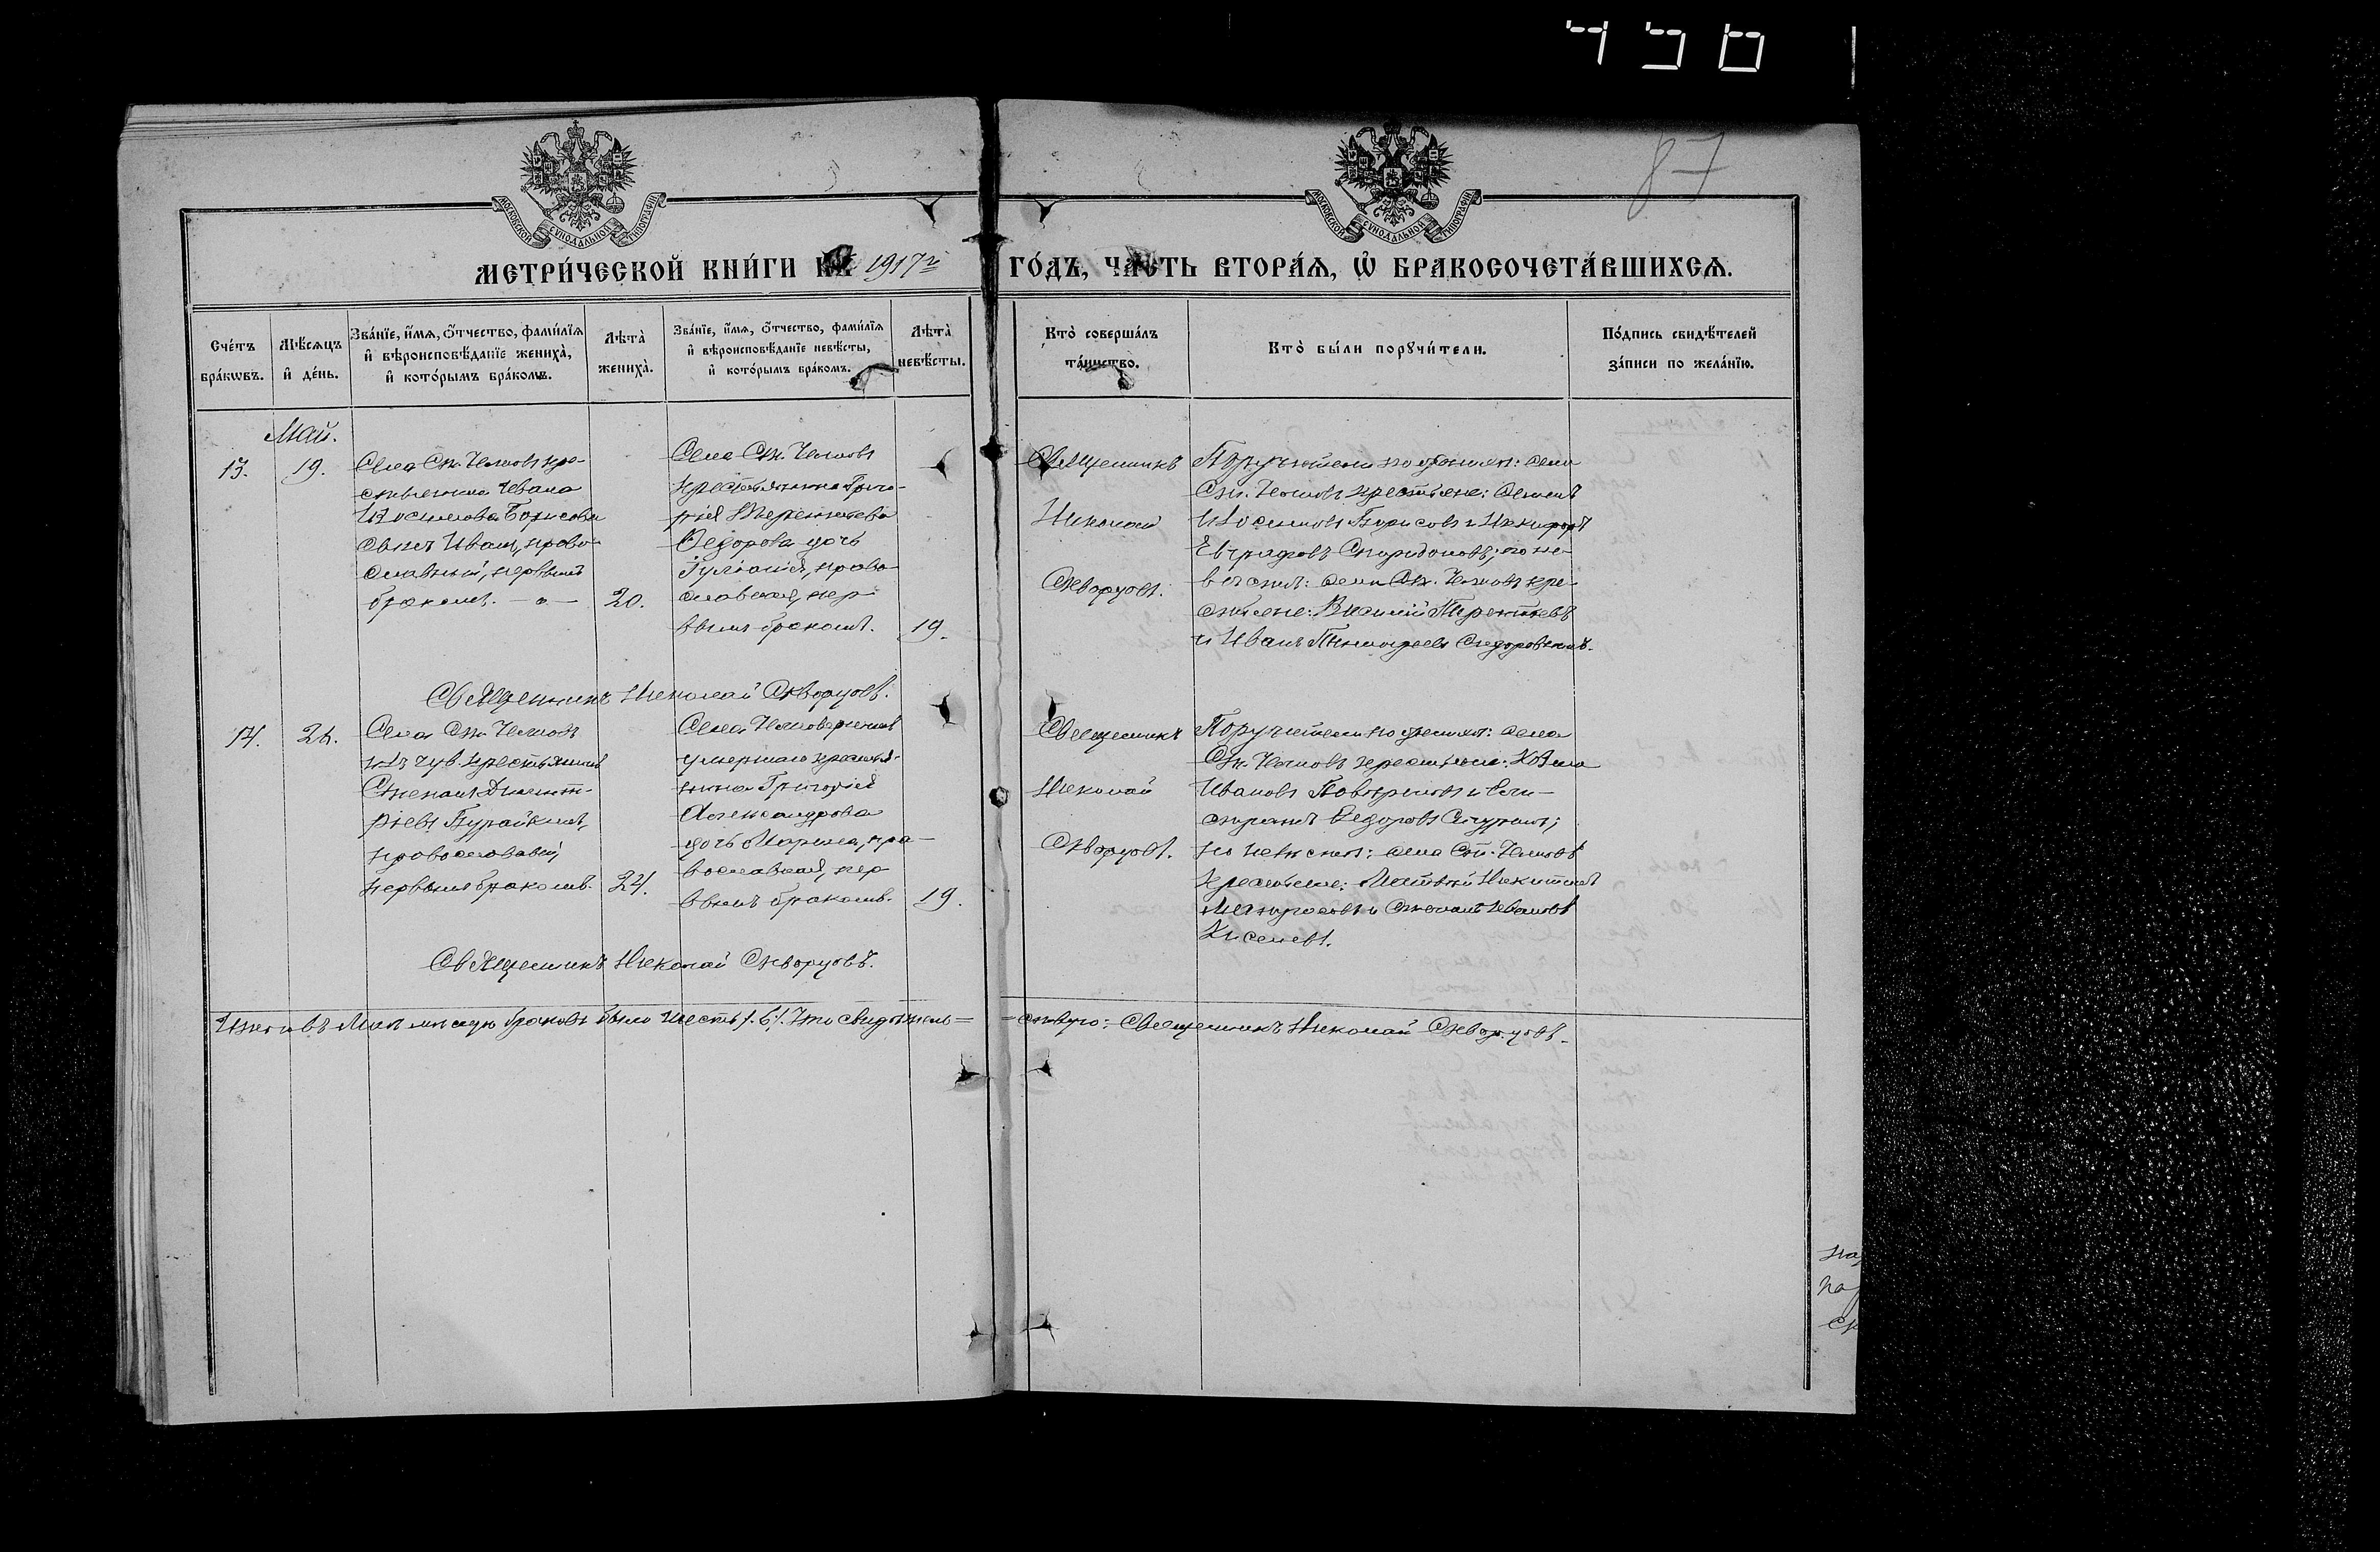 450
87
МОСКОВСКОЙ СУНОДАЛЬНОЙ ТИПОГРАФІИ
МОСКОВСКОЙ СУНОДАЛЬНОЙ ТИПОГРАФІИ
МЕТРИ́ЧЕСКОЙ КНИ́ГИ НА 1917й ГО́ДЪ, ЧА́СТЬ ВТОРА́Ѧ, Ѡ҆ БРАКОСОЧЕТА́ВШИХСѦ.
Сче́тъ бра́кѡвъ.
Мѣ́сѧцъ и҆ де́нь.
Зва́нїе, и҆́мѧ, о҆́тчество, фами́лїѧ и҆ вѣроисповѣ́данїе жениха̀, и҆ кото́рымъ бра́комъ.
Лѣта̀ жениха̀.
Зва́нїе, и҆́мѧ, о҆́тчество, фами́лїѧ и҆ вѣроисповѣ́данїе невѣ́сты, и҆ кото́рымъ бра́комъ.
Лѣта̀ невѣ́сты.
Кто̀ соверша́лъ та́инство.
Кто̀ бы́ли порꙋчи́тели.
По́дпись свидѣ́телей за́писи по жела́нїю.
Май.
13.
19.
Села Ст. Челновъ кре-
стьянина Ивана
Борисова
сынъ Иванъ, право-
славный, первымъ
бракомъ.
20.
Села Ст. Челновъ
крестьянина Григо-
рія Терентьева
Ѳедорова дочь
Іуліанія, право-
славная, пер-
вымъ бракомъ.
19.
Священникъ
Николай
Скворцовъ.
Поручители по женихѣ: села
Ст. Челновъ крестьяне:
Борисовъ и Никифоръ
Евграфовъ Спиридоновъ; по не-
вѣстѣ: села Ст. Челновъ кре-
стьяне: Василій Терентьевъ
и Иванъ
Священникъ Николай Скворцовъ.
14.
24.
Села Ст. Челновъ
изъ чув. крестьянинъ
Степанъ Димит-
ріевъ
православный,
первымъ бракомъ.
24.
Села
умершаго крестья-
нина Григорія
Александрова
дочь Марина, пра-
вославная, пер-
вымъ бракомъ.
19.
Священникъ
Николай
Скворцовъ.
Поручители по женихѣ: села
Ст. Челновъ крестьяне:
Ивановъ
Ѳедоровъ
по невѣстѣ: села Ст. Челновъ
крестьяне: Матвѣй Никитинъ
и Степанъ Ивановъ
Киселевъ.
Священникъ Николай Скворцовъ.
Итого въ Маѣ мѣсяцѣ браковъ было шесть /. 6./. Что свидѣтель-
ствую: Священникъ Николай Скворцовъ.